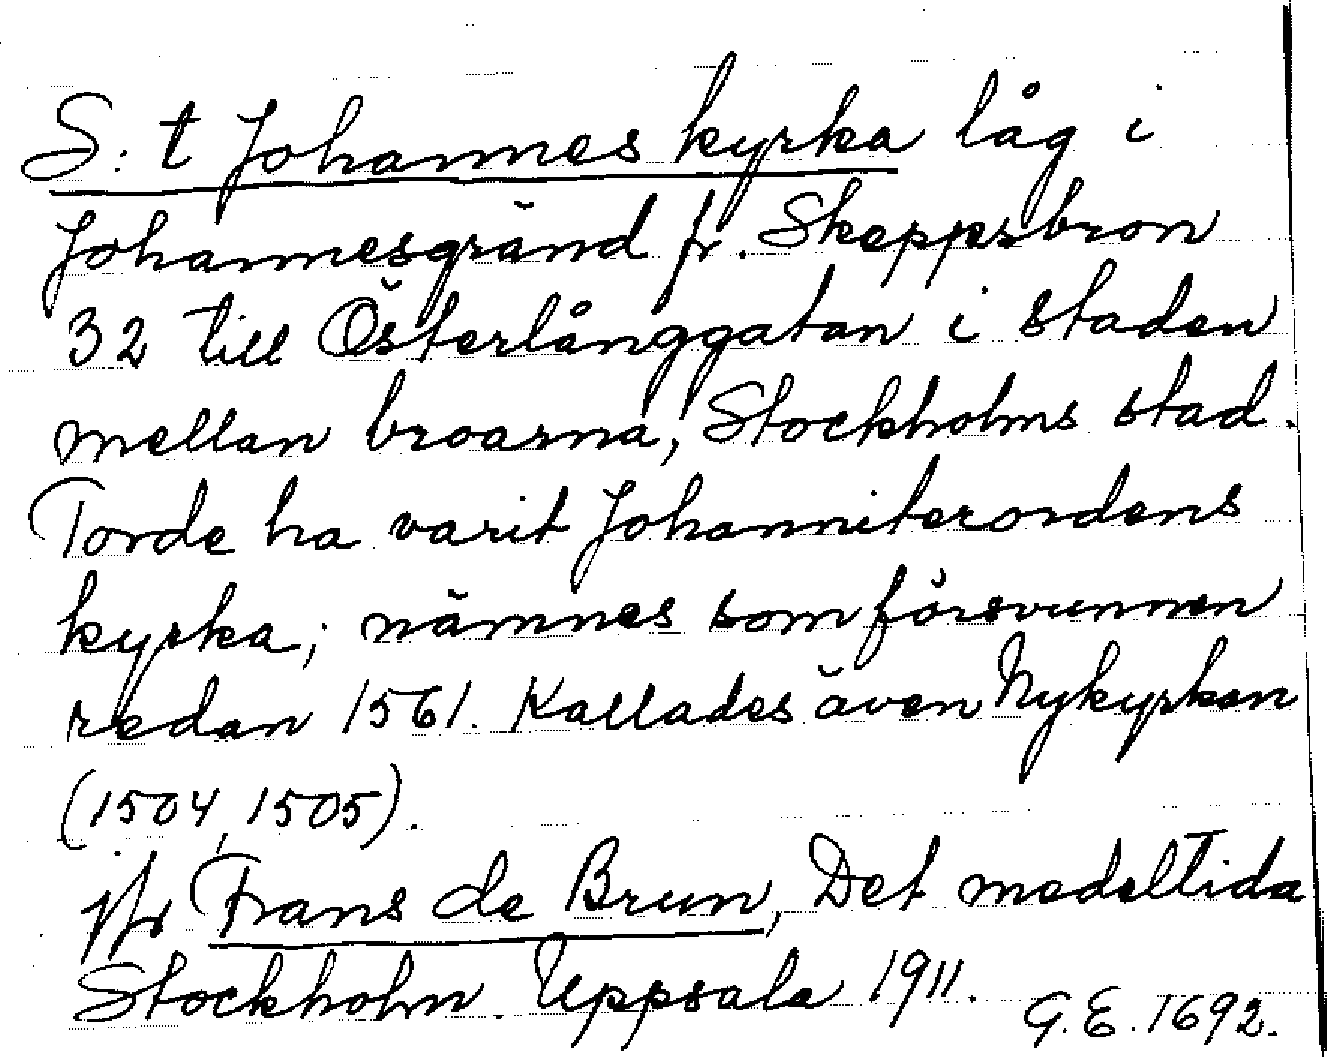 S:t Johannes kyrka låg i
Johannesgränd fr. Skeppsbron
32 till Österlånggatan i staden
mellan broarna, Stockholms stad.
Torde ha varit Johanniterordens
kyrka; nämnes som försvunnen
redan 1561. Kallades även Nykyrkan
(1504, 1505).
jfr Frans de Brun, Det medeltida
Stockholm. Uppsala 1911.
G.E. 1692.